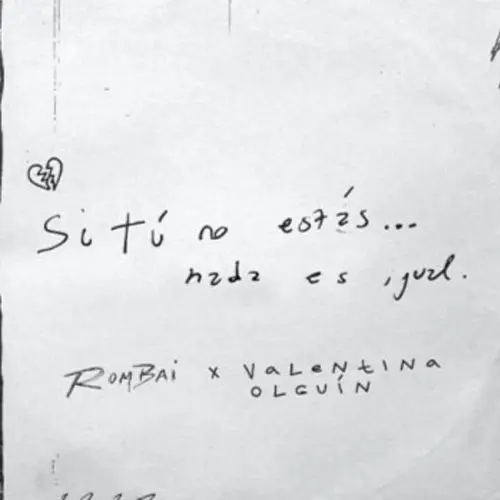 Si tú no estás...
nada es igual.
ROMBAI x VALENTINA
OLGUÍN